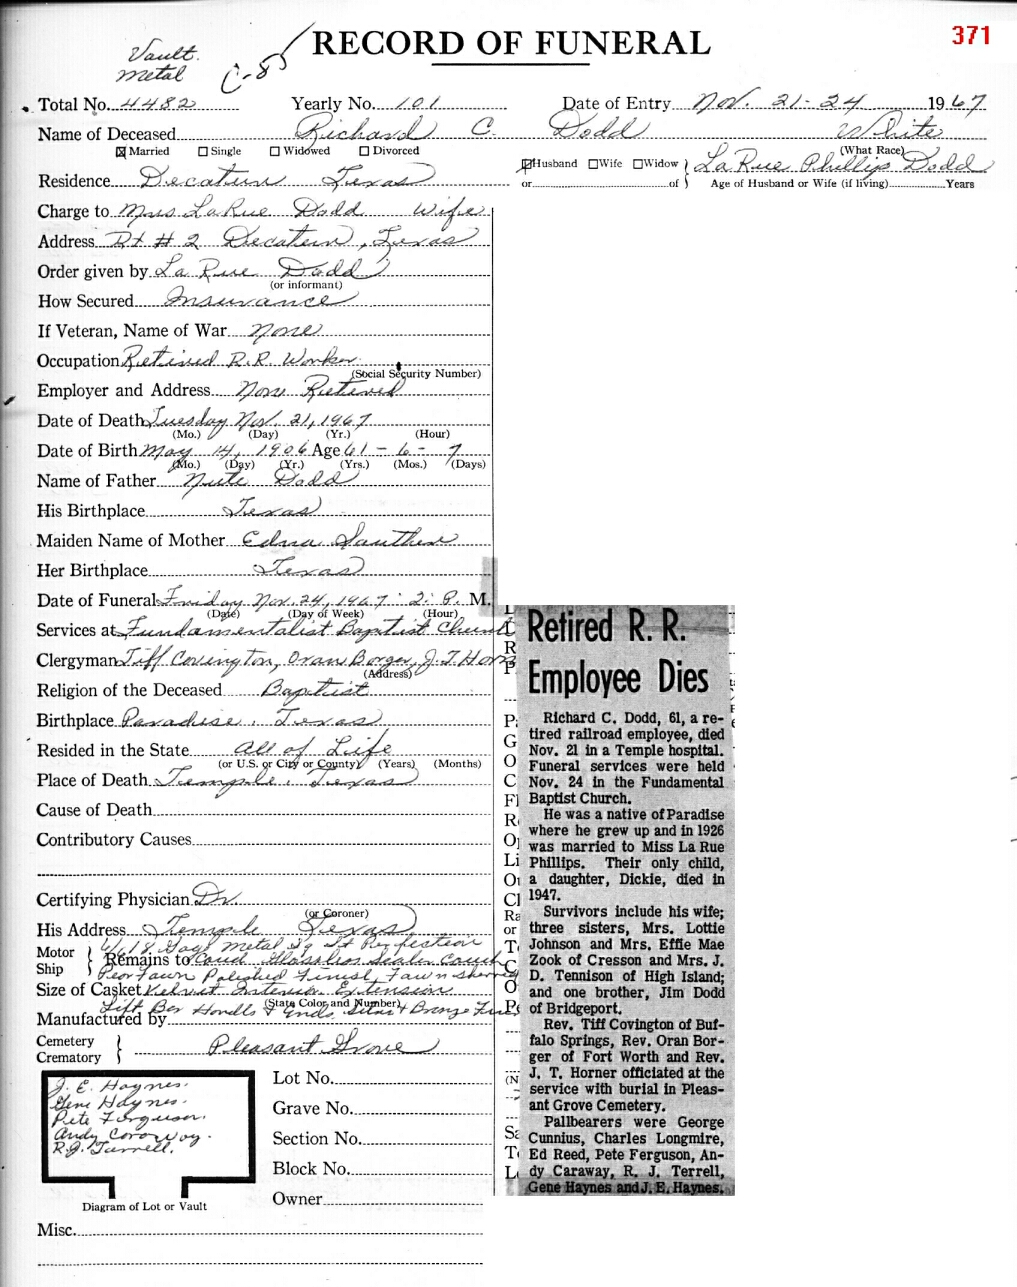 371
RECORD OF FUNERAL
Vault
Metal
C-85
Total No. 4482 Yearly No. 101 Date of Entry Nov. 21-24 1967
Name of Deceased Richard C. Dodd White
(What Race)
Married Single Widowed Divorced
Husband Wife Widow LaRue Phillips Dodd
or of Age of Husband or Wife (if living) Years
Residence Decatur Texas
Charge to Mrs LaRue Dodd Wife
Address Rt # 2 Decatur, Texas
Order given by La Rue Dodd
(or informant)
How Secured Insurance
If Veteran, Name of War None
Occupation Retired R.R. Worker
(Social Security Number)
Employer and Address Now Retired
Date of Death Tuesday Nov. 21, 1967
(Mo.) (Day) (Yr.) (Hour)
Date of Birth May 14, 1906 Age 61 - 6 - 7
(Mo.) (Day) (Yr.) (Yrs.) (Mos.) (Days)
Name of Father Nute Dodd
His Birthplace Texas
Maiden Name of Mother Edna
Her Birthplace Texas
Date of Funeral Friday Nov. 24, 1967 2: P. M.
(Date) (Day of Week) (Hour)
Services at Fundamentalist Baptist Church
Clergyman Tiff Covington, Oran Borger, J.T. Horn
(Address)
Religion of the Deceased Baptist
Birthplace Paradise, Texas
Resided in the State All of Life
(or U.S. or City or County) (Years) (Months)
Place of Death Temple, Texas
Cause of Death
Contributory Causes
Certifying Physician Dr.
(or Coroner)
His Address Temple Texas
Motor
Ship
18 Gage Metal Perfection
Remains to Sealer Couch
Fawn Polished Finish, Fawn
Size of Casket Velvet Interior Extension
(State Color and Number)
Lift Bar Handles & Ends, & Bronze
Manufactured by
Cemetery
Crematory
Pleasant Grove
J. E. Haynes.
Gene Haynes.
Pete Ferguson.
Andy Caroway.
R.J. Turrell.
Lot No.
Grave No.
Section No.
Block No.
Owner
Diagram of Lot or Vault
Misc.
Retired R. R.
Employee Dies
Richard C. Dodd, 61, a re-
tired railroad employee, died
Nov. 21 in a Temple hospital.
Funeral services were held
Nov. 24 in the Fundamental
Baptist Church.
He was a native of Paradise
where he grew up and in 1926
was married to Miss La Rue
Phillips. Their only child,
a daughter, Dickie, died in
1947.
Survivors include his wife;
three sisters, Mrs. Lottie
Johnson and Mrs. Effie Mae
Zook of Cresson and Mrs. J.
D. Tennison of High Island;
and one brother, Jim Dodd
of Bridgeport.
Rev. Tiff Covington of Buf-
falo Springs, Rev. Oran Bor-
ger of Fort Worth and Rev.
J. T. Horner officiated at the
service with burial in Pleas-
ant Grove Cemetery.
Pallbearers were George
Cunnius, Charles Longmire,
Ed Reed, Pete Ferguson, An-
dy Caraway, R. J. Terrell,
Gene Haynes and J. E. Haynes.